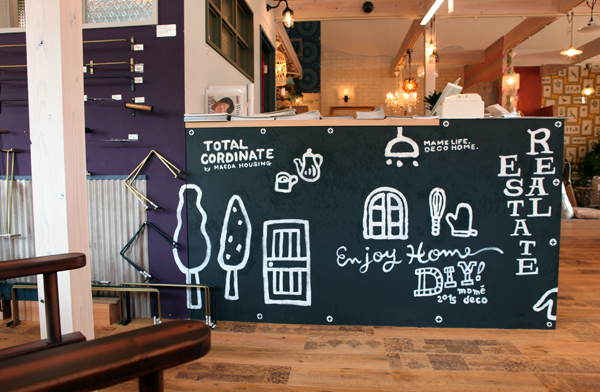 TOTAL
CORDINATE
by MAEDA HOUSING
MAME LIFE,
DECO HOME.
REAL
ESTATE
Enjoy Home
DIY!
momé
2015 deco